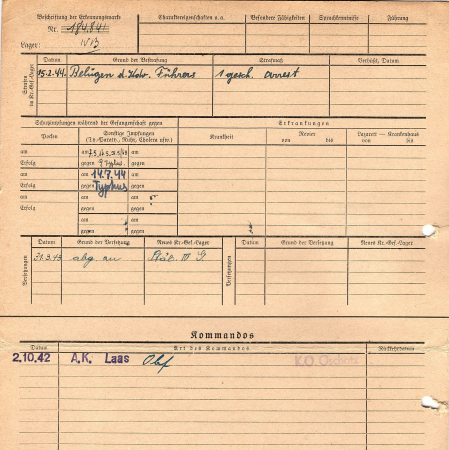 Beschriftung der Erkennungsmarke Charaktereigenschaften u.a. Besondere Fähigkeiten Sprachkenntnisse Führung
Nr. 184841
Lager: IV B
Strafen im Kr.-Gef.-Lager
Datum Grund der Bestrafung Strafmaß Verbüßt, Datum
15.2.44. Belügen d. Kdo. Führers 1 gesch. Arrest
Schutzimpfungen während der Gefangenschaft gegen Erkrankungen
Pocken Sonstige Impfungen (Ty.-Paratyp., Ruhr, Cholera usw.) Krankheit Revier von bis Lazarett — Krankenhaus von bis
am am am
Erfolg gegen gegen
am am 14.7.44 am
Erfolg gegen Typhus gegen
am am am
Erfolg gegen gegen
am am
gegen gegen
Versetzungen
Datum Grund der Versetzung Neues Kr.-Gef.-Lager Versetzungen Datum Grund der Versetzung Neues Kr.-Gef.-Lager
21.3.43 abg. an Stal. IV G.
Kommandos
Datum Art des Kommandos Rückkehrdatum
2.10.42 A.K. Laas K.O. Oschatz